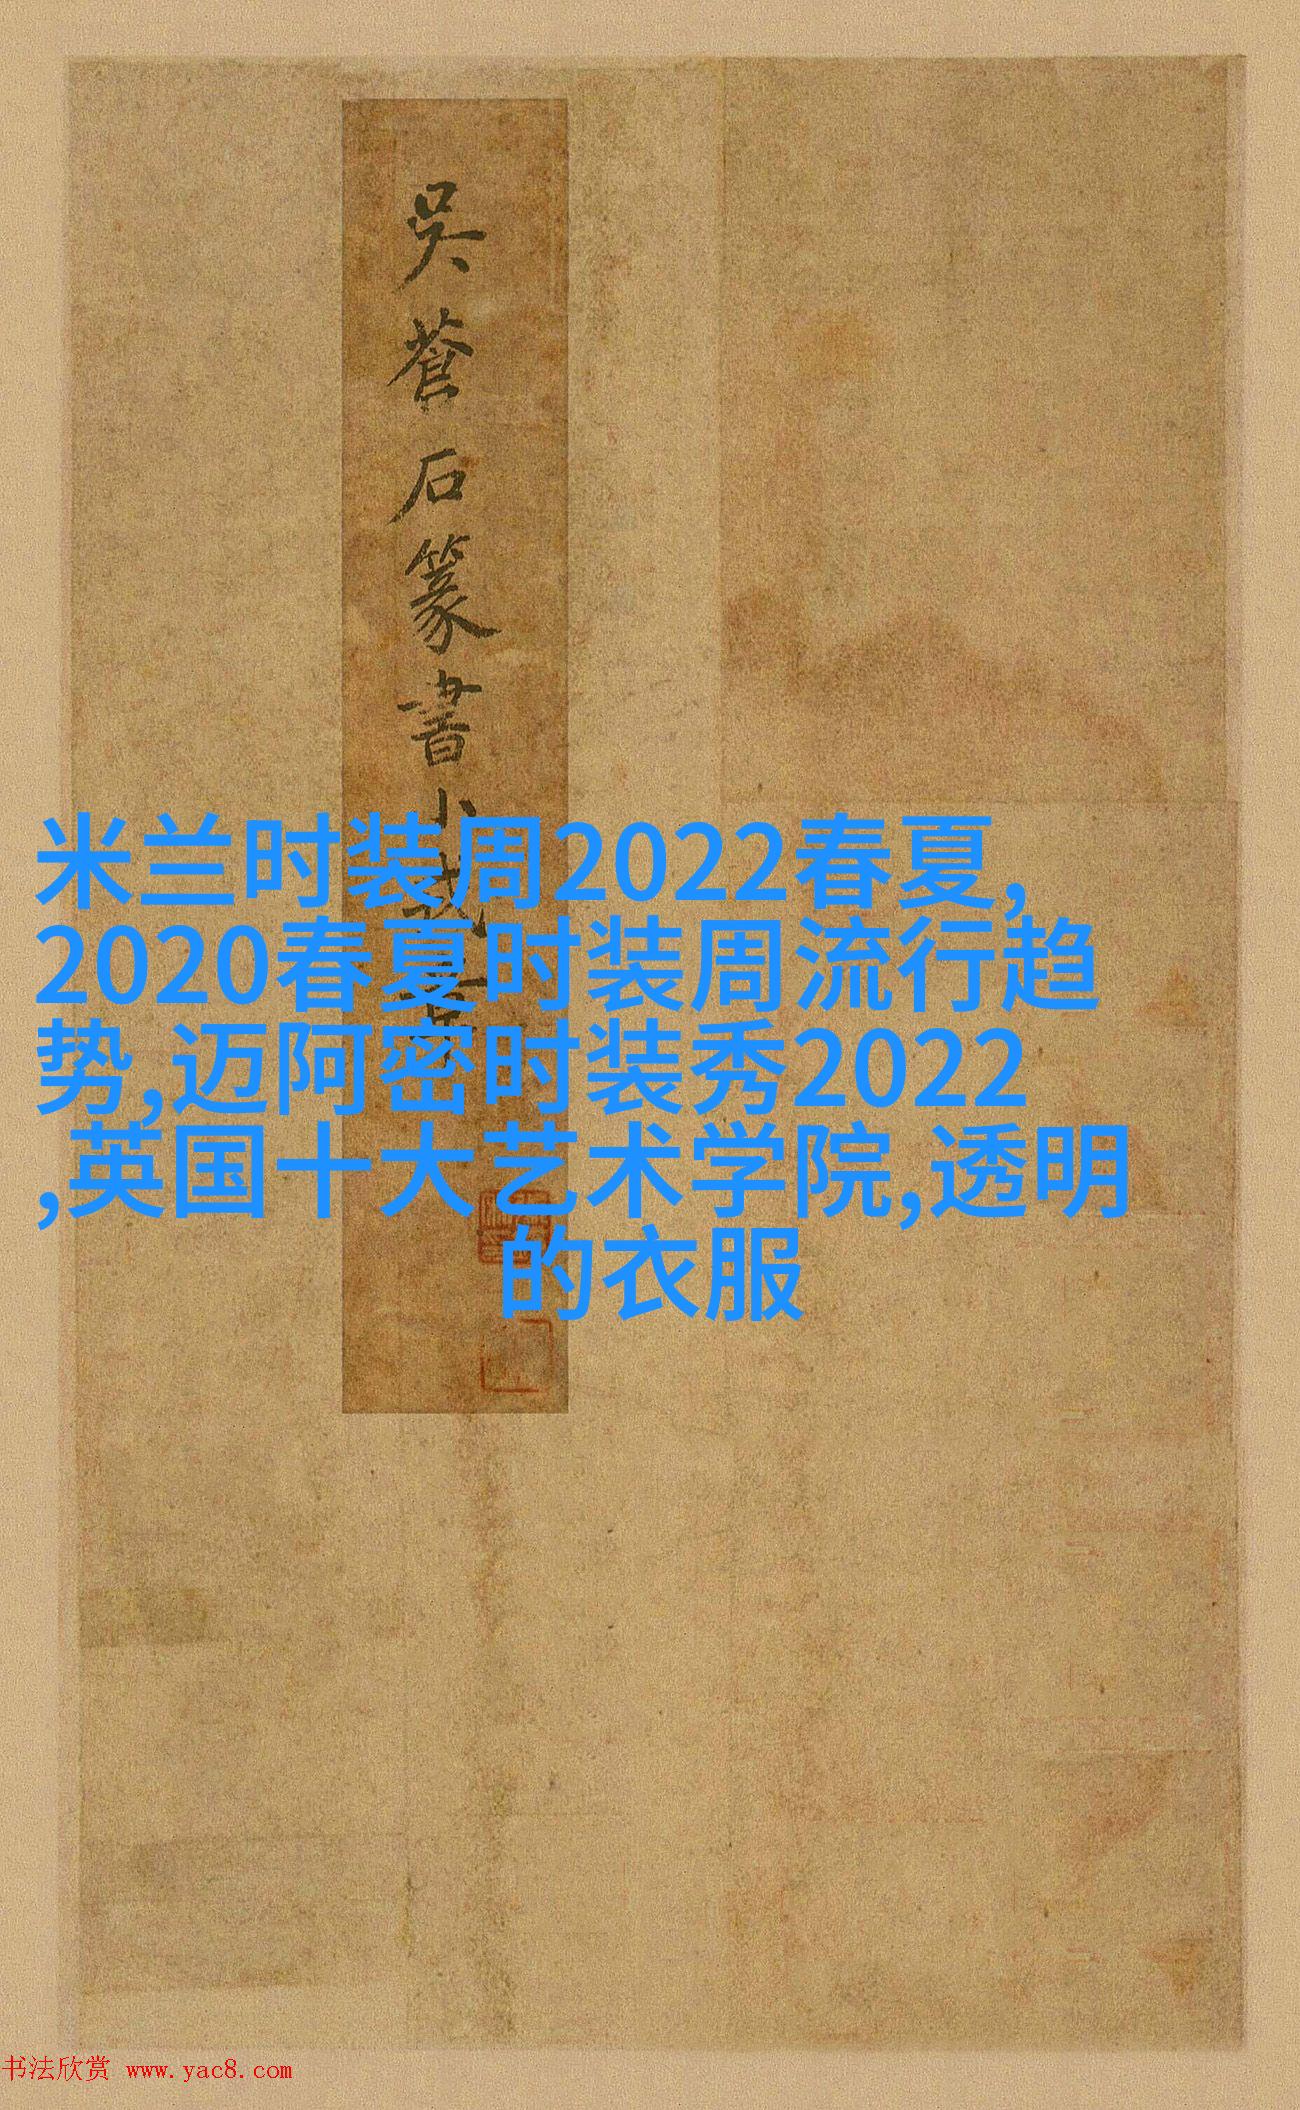 吳蒼石篆書小
米兰时装周2022春夏,
2020春夏时装周流行趋
势,迈阿密时装秀2022
,英国十大艺术学院,透明
的衣服
书法欣赏 www.yac8.com